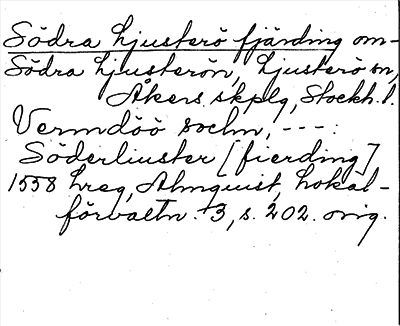 Södra Ljusterö fjärding om-
Södra Ljusterön, Ljusterö sn,
Åkers skplg, Stockh. l.
Vermdöö sochn, ---:
Söderliuster [fierding]
1558 hreg, Almquist, Lokal-
förvaltn. 3, s. 202. orig.